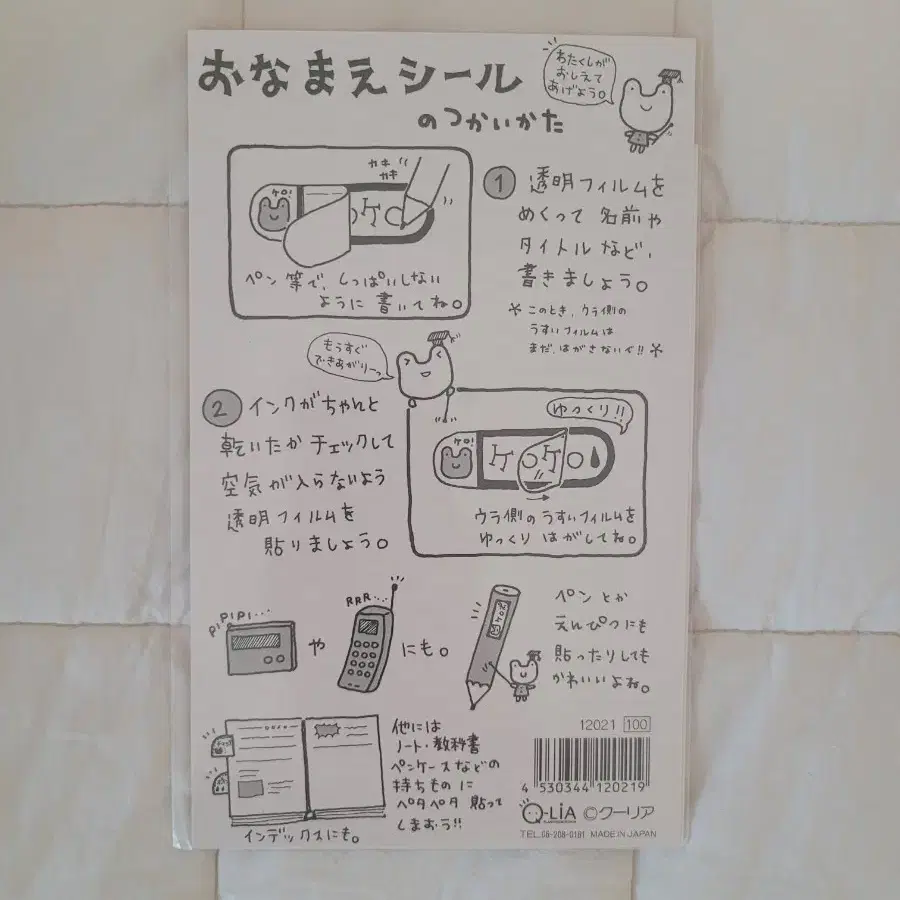 おなまえシール
のつかいかた
わたくしが
おしえて
あげよう。
カキ
カキ
ケロ!
ケ○
ペン等で、しっぱいしない
ように書いてね。
1 透明フィルムを
めくって 名前や
タイトルなど、
書きましょう。
このとき、ウラ側の
うすいフィルムは
まだ、はがさないで!!
もうすぐ
できあがりーっ
2 インクがちゃんと
乾いたかチェックして
空気が入らないよう
透明フィルムを
貼りましょう。
ゆっくり!!
ケロ!
ケ○ケ○
ウラ側のうすいフィルムを
ゆっくり はがしてね。
PiPiPi...
や
RRR...
にも。
ケロケロ
ペンとか
えんぴつにも
貼ったりしても
かわいいよね。
インデックスにも。
他には
ノート・教科書
ペンケースなどの
持ちものに
ペタペタ 貼って
しまおう!!
12021 100
4 530344 120219
Q-LiA ©クーリア
TEL.06-208-0191 MADE IN JAPAN